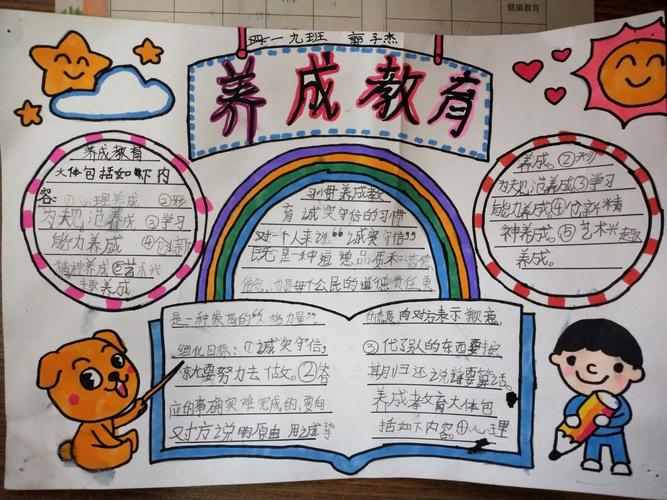 健康教育
四一九班 郭子杰
养成教育
养成教育
大体包括如下内
容①心理养成 ②形
为规范养成 ③学习
能力养成 ④创新
精神养成⑤艺术兴
趣养成
习惯养成教
育诚实守信的习惯
对一个人来说“诚实守信”
既是一种道德品质和道德
信念,也是每个公民的道德责任,更
是一种崇高的“人格力量”。
细化目标:①诚实守信,
就要努力去做。②答
应的事确实难完成的,要向
对方说明原由 用诚挚
的态度向对方表示歉意,
③代了别的东西要按
期归还说话要算话。
养成孝教育大体包
括如下内容。①心理
养成。②形
为规范养成③学习
能力养成④创新精
神养成。⑤艺术兴趣
养成。